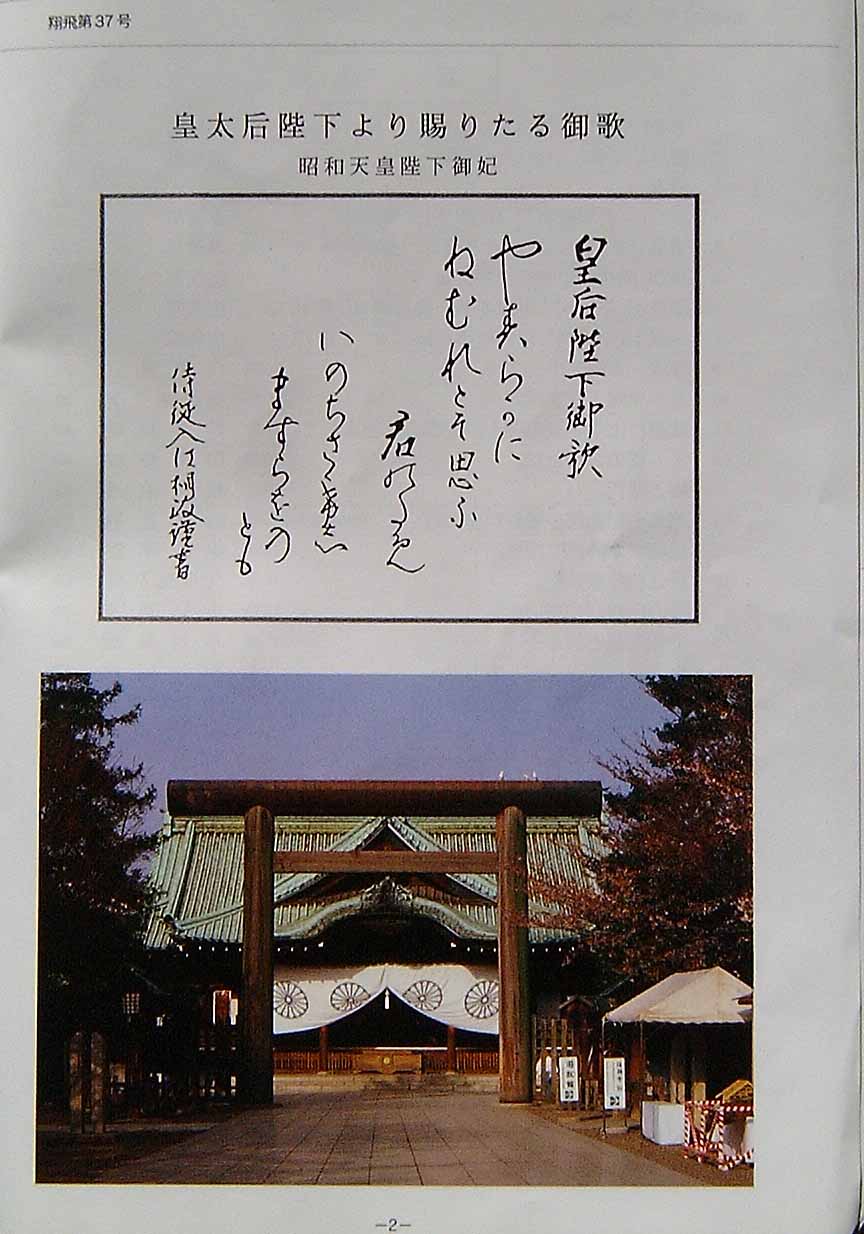 翔飛第37号
皇太后陛下より賜りたる御歌
昭和天皇陛下御妃
皇后陛下御歌
やすらかに
ねむれとそ思ふ
君のため
いのちささけし
ますらをの
とも
侍従入江相政謹書
−2−